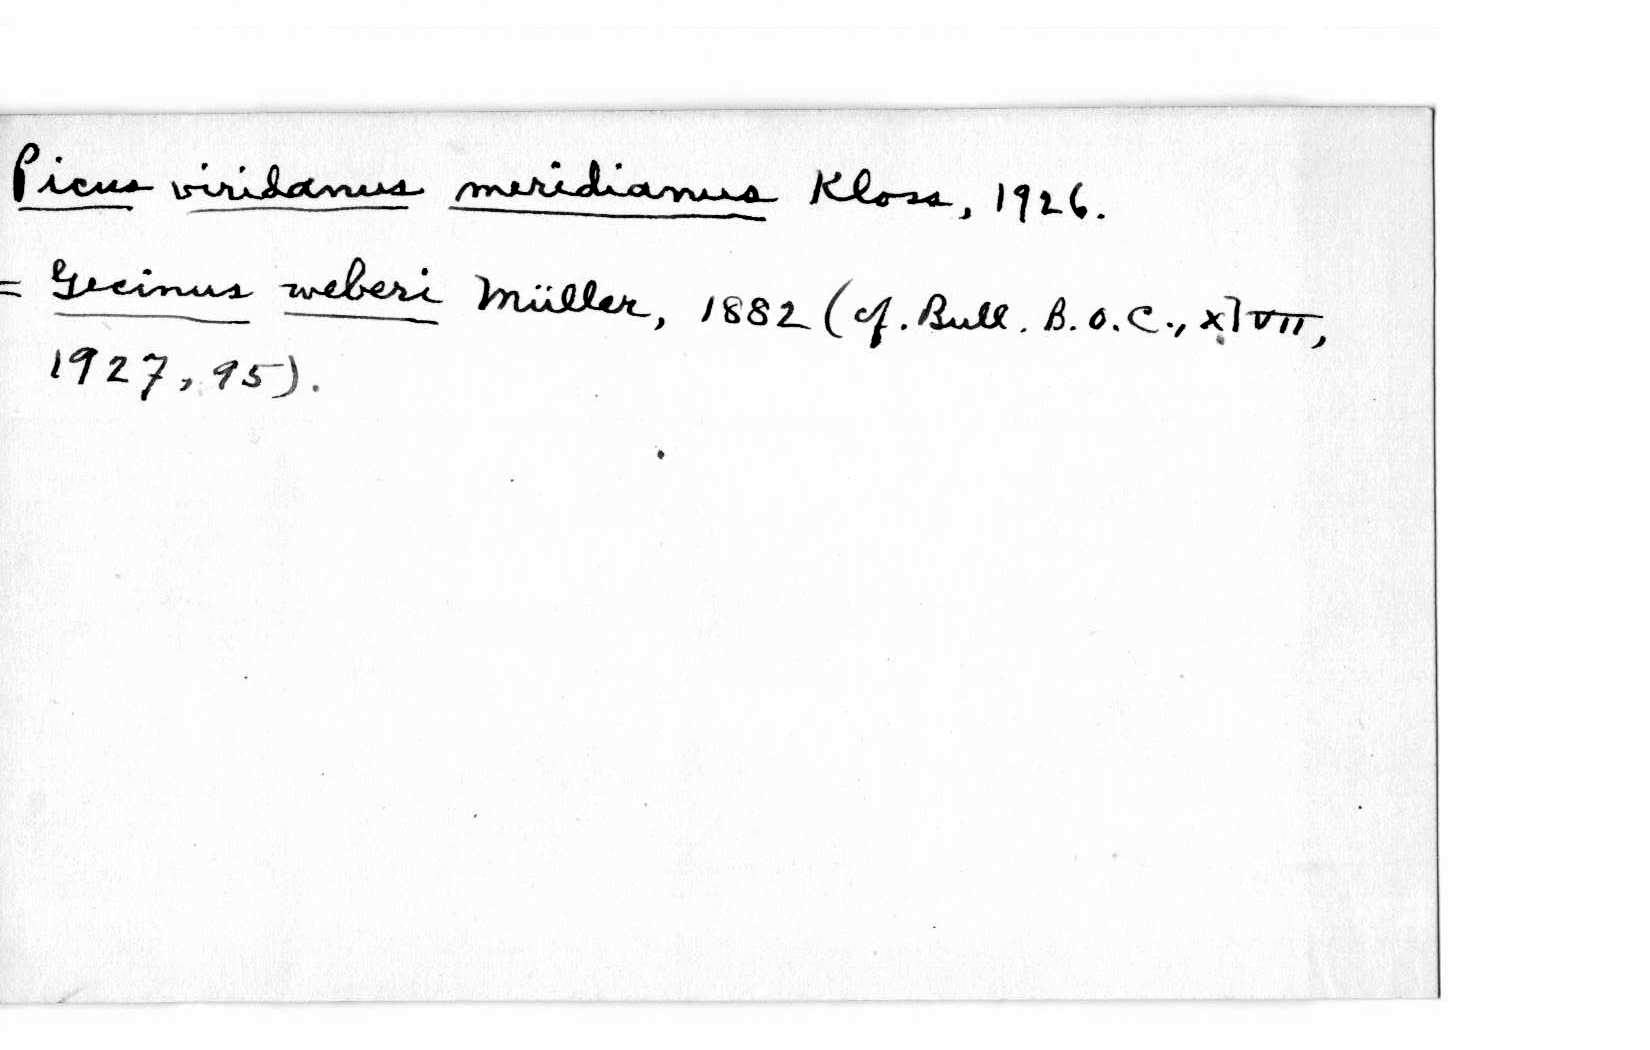 Picus viridanus meridianus Kloss, 1926.
= Gecinus weberi Müller, 1882 (cf. Bull. B.O.C., XLVII,
1927, 95).